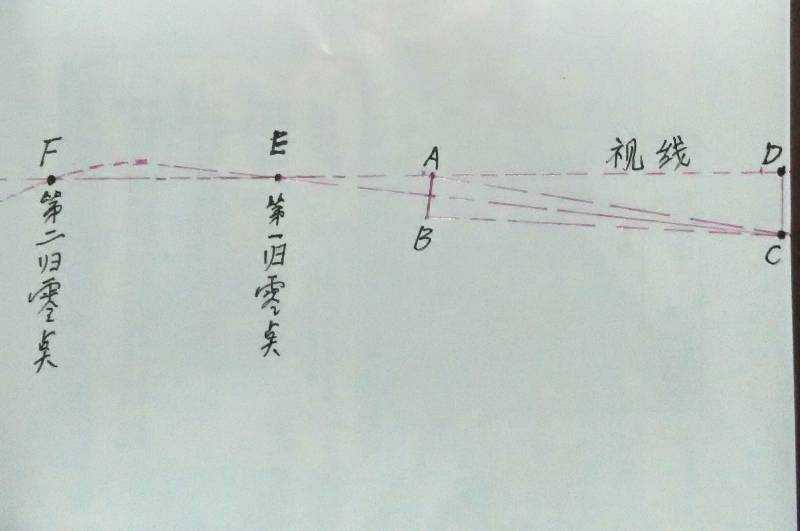 F
E
A
视线
D
B
C
第二归零点
第一归零点